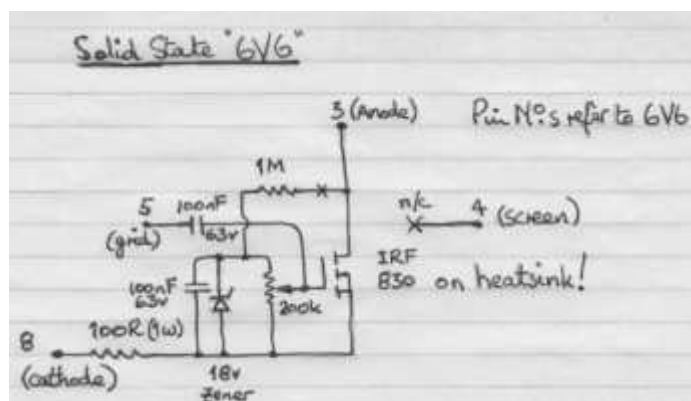 Solid State "6V6"
3 (Anode)
Pin Nº.s refer to 6V6
1M
n/c
4 (screen)
5
(grid)
100nF
63v
IRF
830 on heatsink!
100nF
63v
200k
100R (1w)
8
(cathode)
18v
Zener